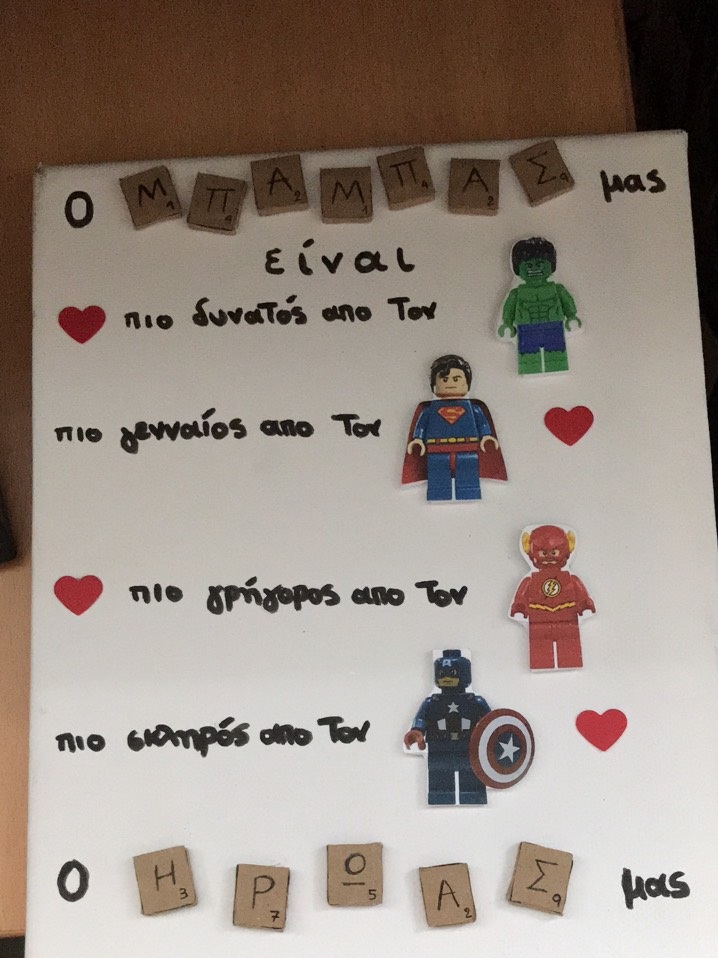 Ο ΜΠΑΜΠΑΣ μας
1 4 2 1 4 2 9
είναι
πιο δυνατός απο Τον
πιο γενναίος απο Τον
πιο γρήγορος απο Τον
πιο σκληρός απο Τον
A
Ο ΗΡΟΑΣ μας
3 7 5 2 9